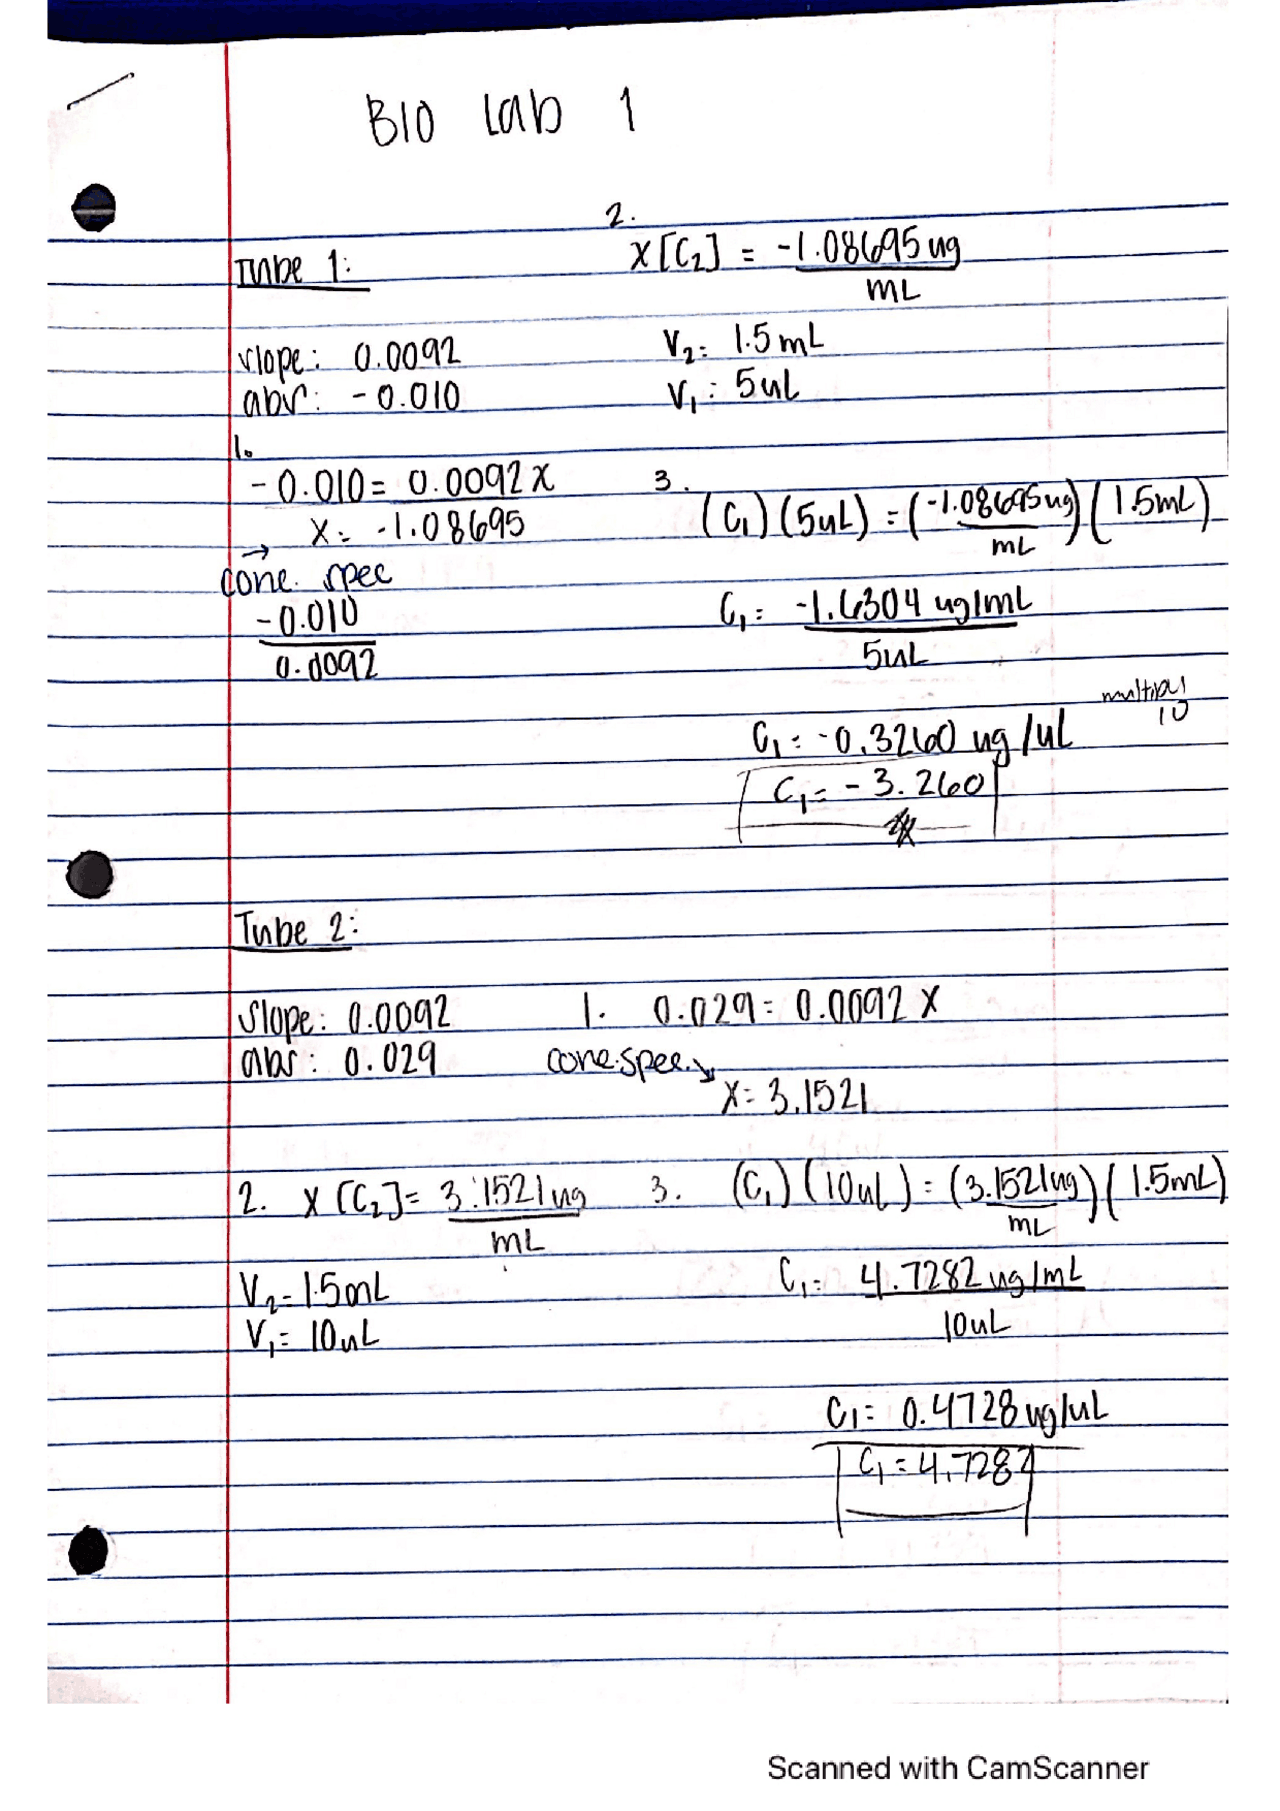 BIO Lab 1
Tube 1:
slope: 0.0092
abs: -0.010
1.
-0.010 = 0.0092x
x = -1.08695
conc. spec
-0.010
0.0092
2.
x [C₂] = -1.08695 ug
mL
V₂: 1.5 mL
V₁: 5uL
3.
(C₁)(5uL) = (-1.08695ug)(1.5mL)
mL
C₁: -1.6304 ug/mL
5uL
C₁: -0.3260 ug/uL
10
C₁= -3.260
Tube 2:
Slope: 0.0092
abs: 0.029
1. 0.029 = 0.0092 x
conc.spec.
x= 3.1521
2. x [C₂]= 3.1521ug
mL
V₂=1.5mL
V₁= 10uL
3. (C₁)(10uL) = (3.1521ug)(1.5mL)
mL
C₁= 4.7282 ug/mL
10uL
C₁= 0.4728 ug/uL
C₁ = 4.7282
Scanned with CamScanner